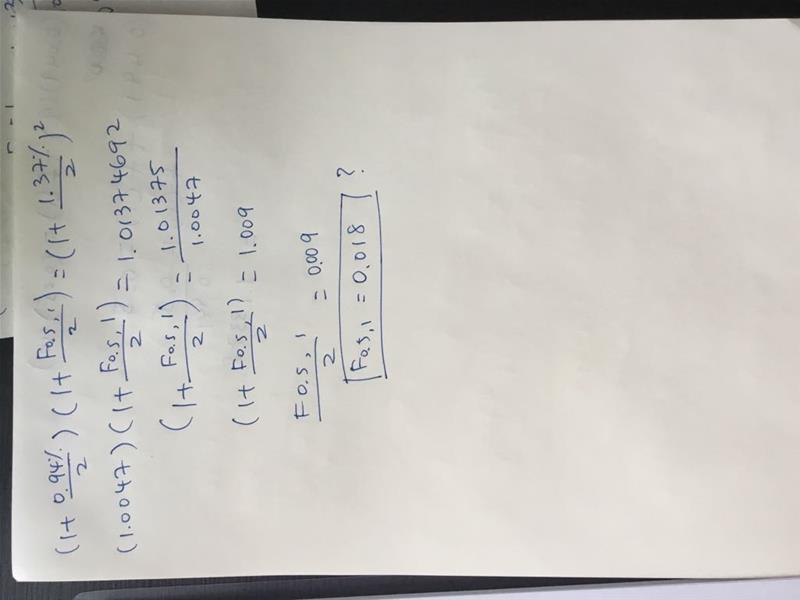 (1+ 0.94%/2) (1+ F0.5,1/2) = (1+ 1.37%/2)²
(1.0047) (1+ F0.5,1/2) = 1.01374692
(1+ F0.5,1/2) = 1.01375/1.0047
(1+ F0.5,1/2) = 1.009
F0.5,1/2 = 0.009
F0.5,1 = 0.018 ?